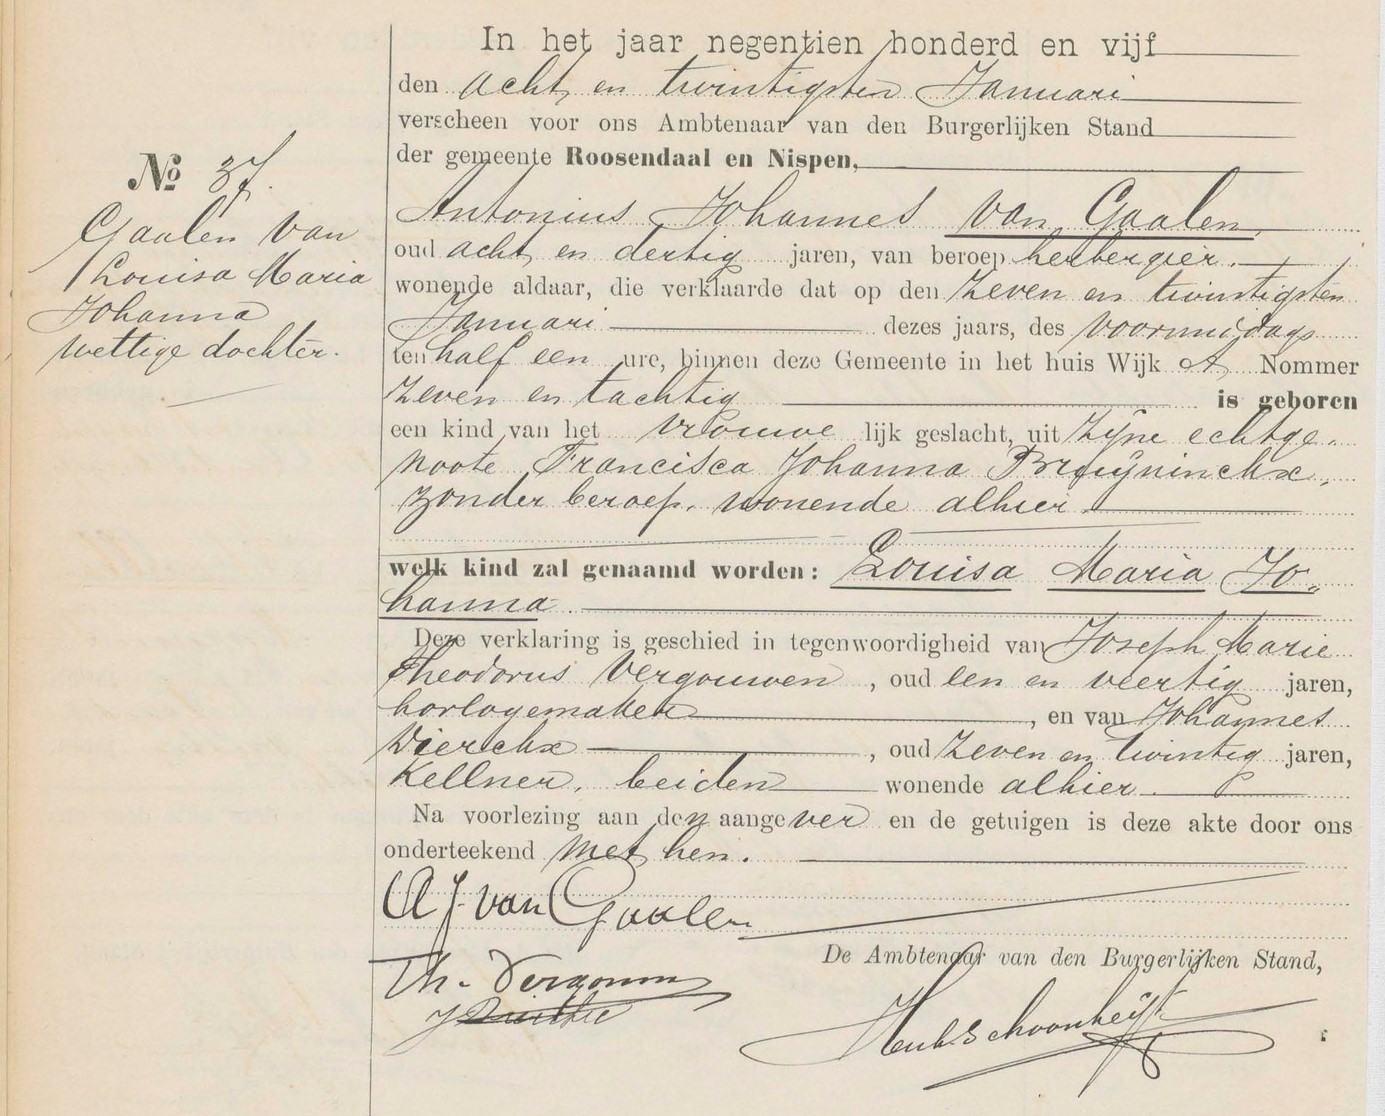 In het jaar negentien honderd en vijf
den acht en twintigsten Januari
verscheen voor ons Ambtenaar van den Burgerlijken Stand
der gemeente Roosendaal en Nispen,
No 37.
Gaalen van
Louisa Maria
Johanna
wettige dochter.
Antonius Johannes van Gaalen,
oud acht en dertig jaren, van beroep herbergier.
wonende aldaar, die verklaarde dat op den zeven en twintigsten
Januari dezes jaars, des voormiddags
ten half een ure, binnen deze Gemeente in het huis Wijk A Nommer
zeven en tachtig is geboren
een kind van het vrouwe lijk geslacht, uit zijne echtge-
noote Francisca Johanna Bruijninckx,
zonder beroep, wonende alhier
welk kind zal genaamd worden: Louisa Maria Jo-
hanna
Deze verklaring is geschied in tegenwoordigheid van Joseph Marie
Theodorus Vergouwen, oud een en veertig jaren,
horlogemaker, en van Johannes
Dierckx, oud zeven en twintig jaren,
Kellner, beiden wonende alhier.
Na voorlezing aan den aangever en de getuigen is deze akte door ons
onderteekend met hen.
A J. van Gaalen
De Ambtenaar van den Burgerlijken Stand,
Th. Vergouwen
J Dierckx